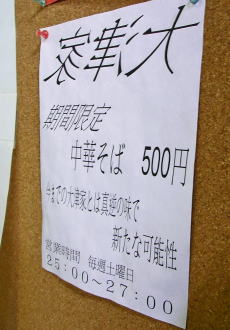 大津家
期間限定
中華そば 500円
今までの大津家とは真逆の味で
新たな可能性
営業時間 毎週土曜日
25:00~27:00